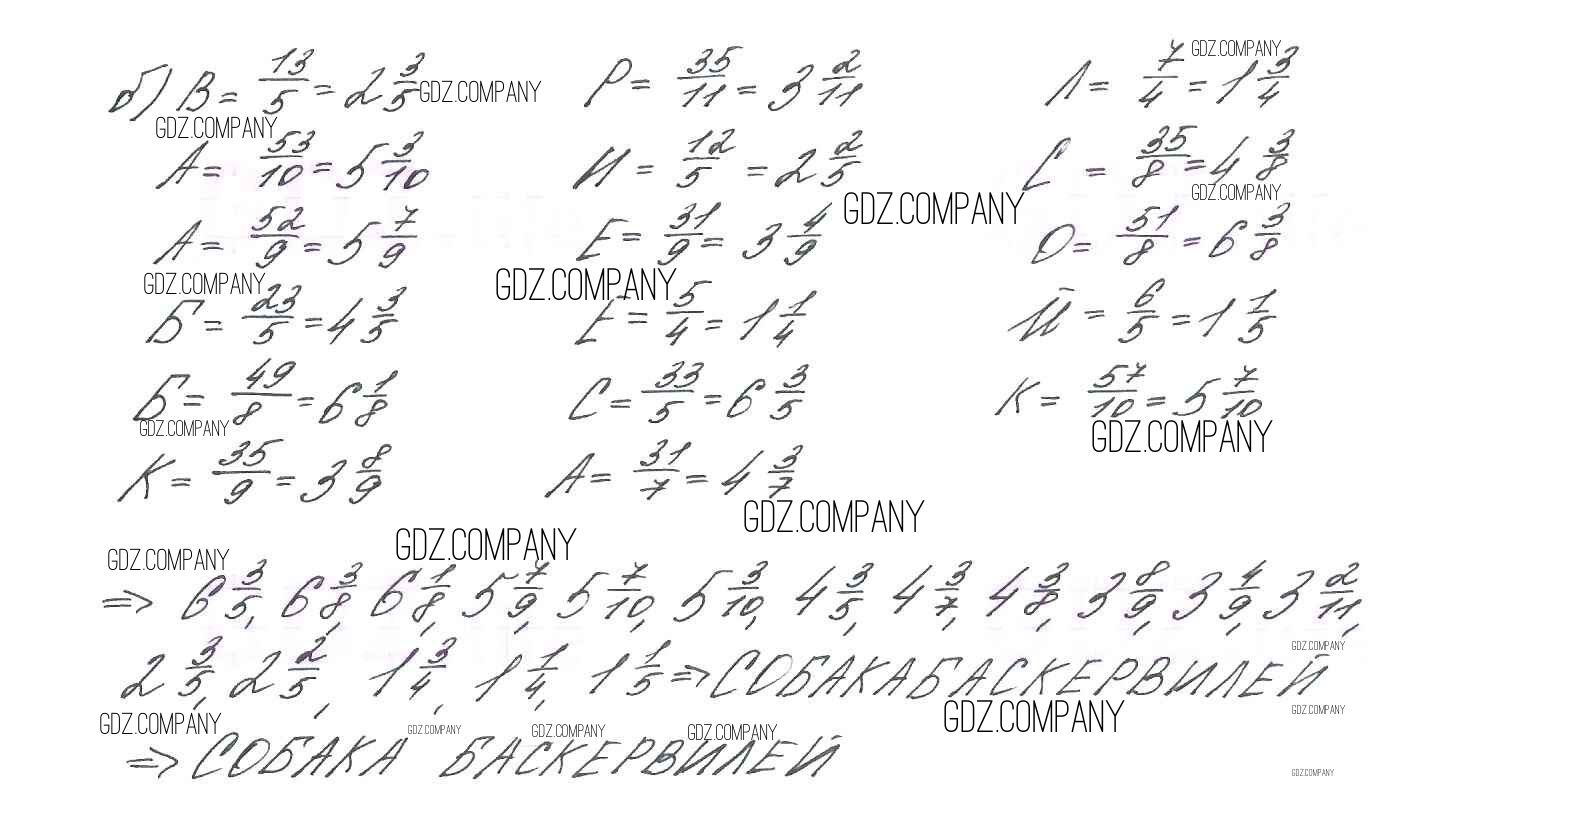 б) В = 13/5 = 2 3/5 GDZ.COMPANY Р = 35/11 = 3 2/11 Л = 7/4 = 1 3/4 GDZ.COMPANY
GDZ.COMPANY
А = 53/10 = 5 3/10 И = 12/5 = 2 2/5 С = 35/8 = 4 3/8
GDZ.COMPANY GDZ.COMPANY
А = 52/9 = 5 7/9 Е = 31/9 = 3 4/9 О = 51/8 = 6 3/8
GDZ.COMPANY GDZ.COMPANY
Б = 23/5 = 4 3/5 Е = 5/4 = 1 1/4 Й = 6/5 = 1 1/5
Б = 49/8 = 6 1/8 С = 33/5 = 6 3/5 К = 57/10 = 5 7/10
GDZ.COMPANY GDZ.COMPANY
К = 35/9 = 3 8/9 А = 31/7 = 4 3/7
GDZ.COMPANY
GDZ.COMPANY GDZ.COMPANY
=> 6 3/5, 6 3/8, 6 1/8, 5 7/9, 5 7/10, 5 3/10, 4 3/5, 4 3/7, 4 3/8, 3 8/9, 3 4/9, 3 2/11,
GDZ.COMPANY
2 3/5, 2 2/5, 1 3/4, 1 1/4, 1 1/5 => СОБАКАБАСКЕРВИЛЕЙ
GDZ.COMPANY GDZ.COMPANY GDZ.COMPANY GDZ.COMPANY GDZ.COMPANY GDZ.COMPANY
=> СОБАКА БАСКЕРВИЛЕЙ
GDZ.COMPANY